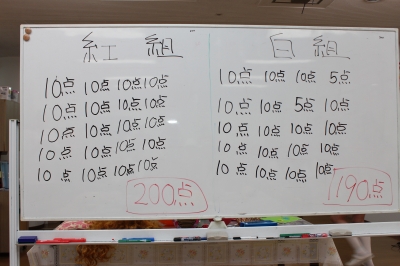 紅組
10点 10点 10点 10点
10点 10点 10点 10点
10点 10点 10点 10点
10点 10点 10点 10点
10点 10点 10点 10点
200点
白組
10点 10点 10点 5点
10点 10点 5点 10点
10点 10点 10点 10点
10点 10点 10点 10点
10点 10点 10点 10点
190点